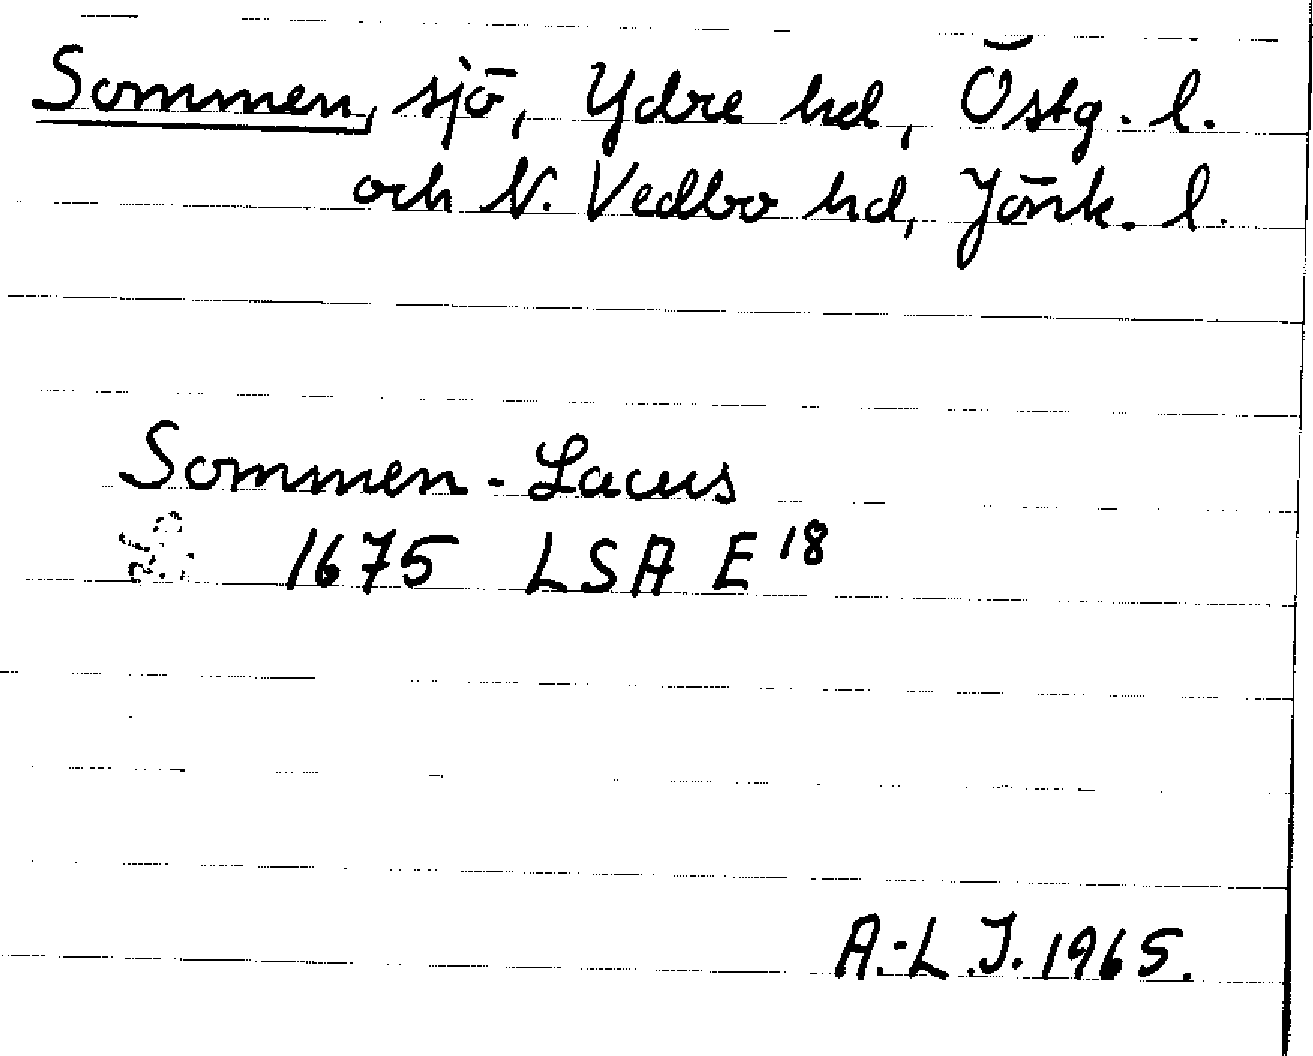 Sommen, sjö, Ydre hd, Östg. l.
och N. Vedbo hd, Jönk. l.
Sommen - Lacus
1675 LSA E 18
A.-L.J. 1965.